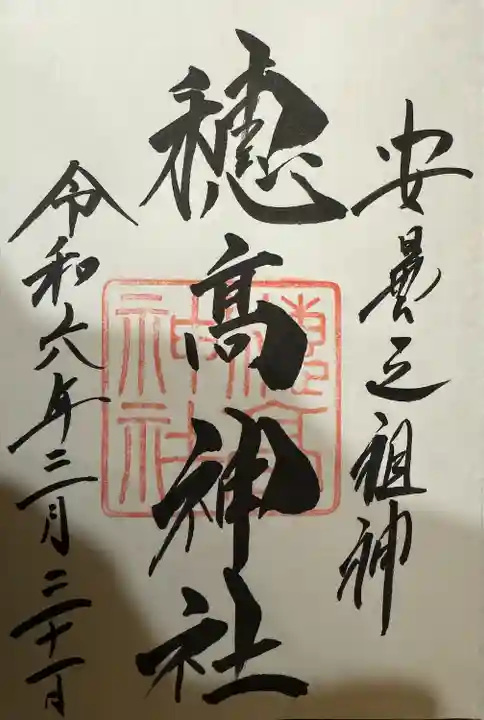 安曇之祖神
穂髙神社
穂高神社
令和六年三月二十一日